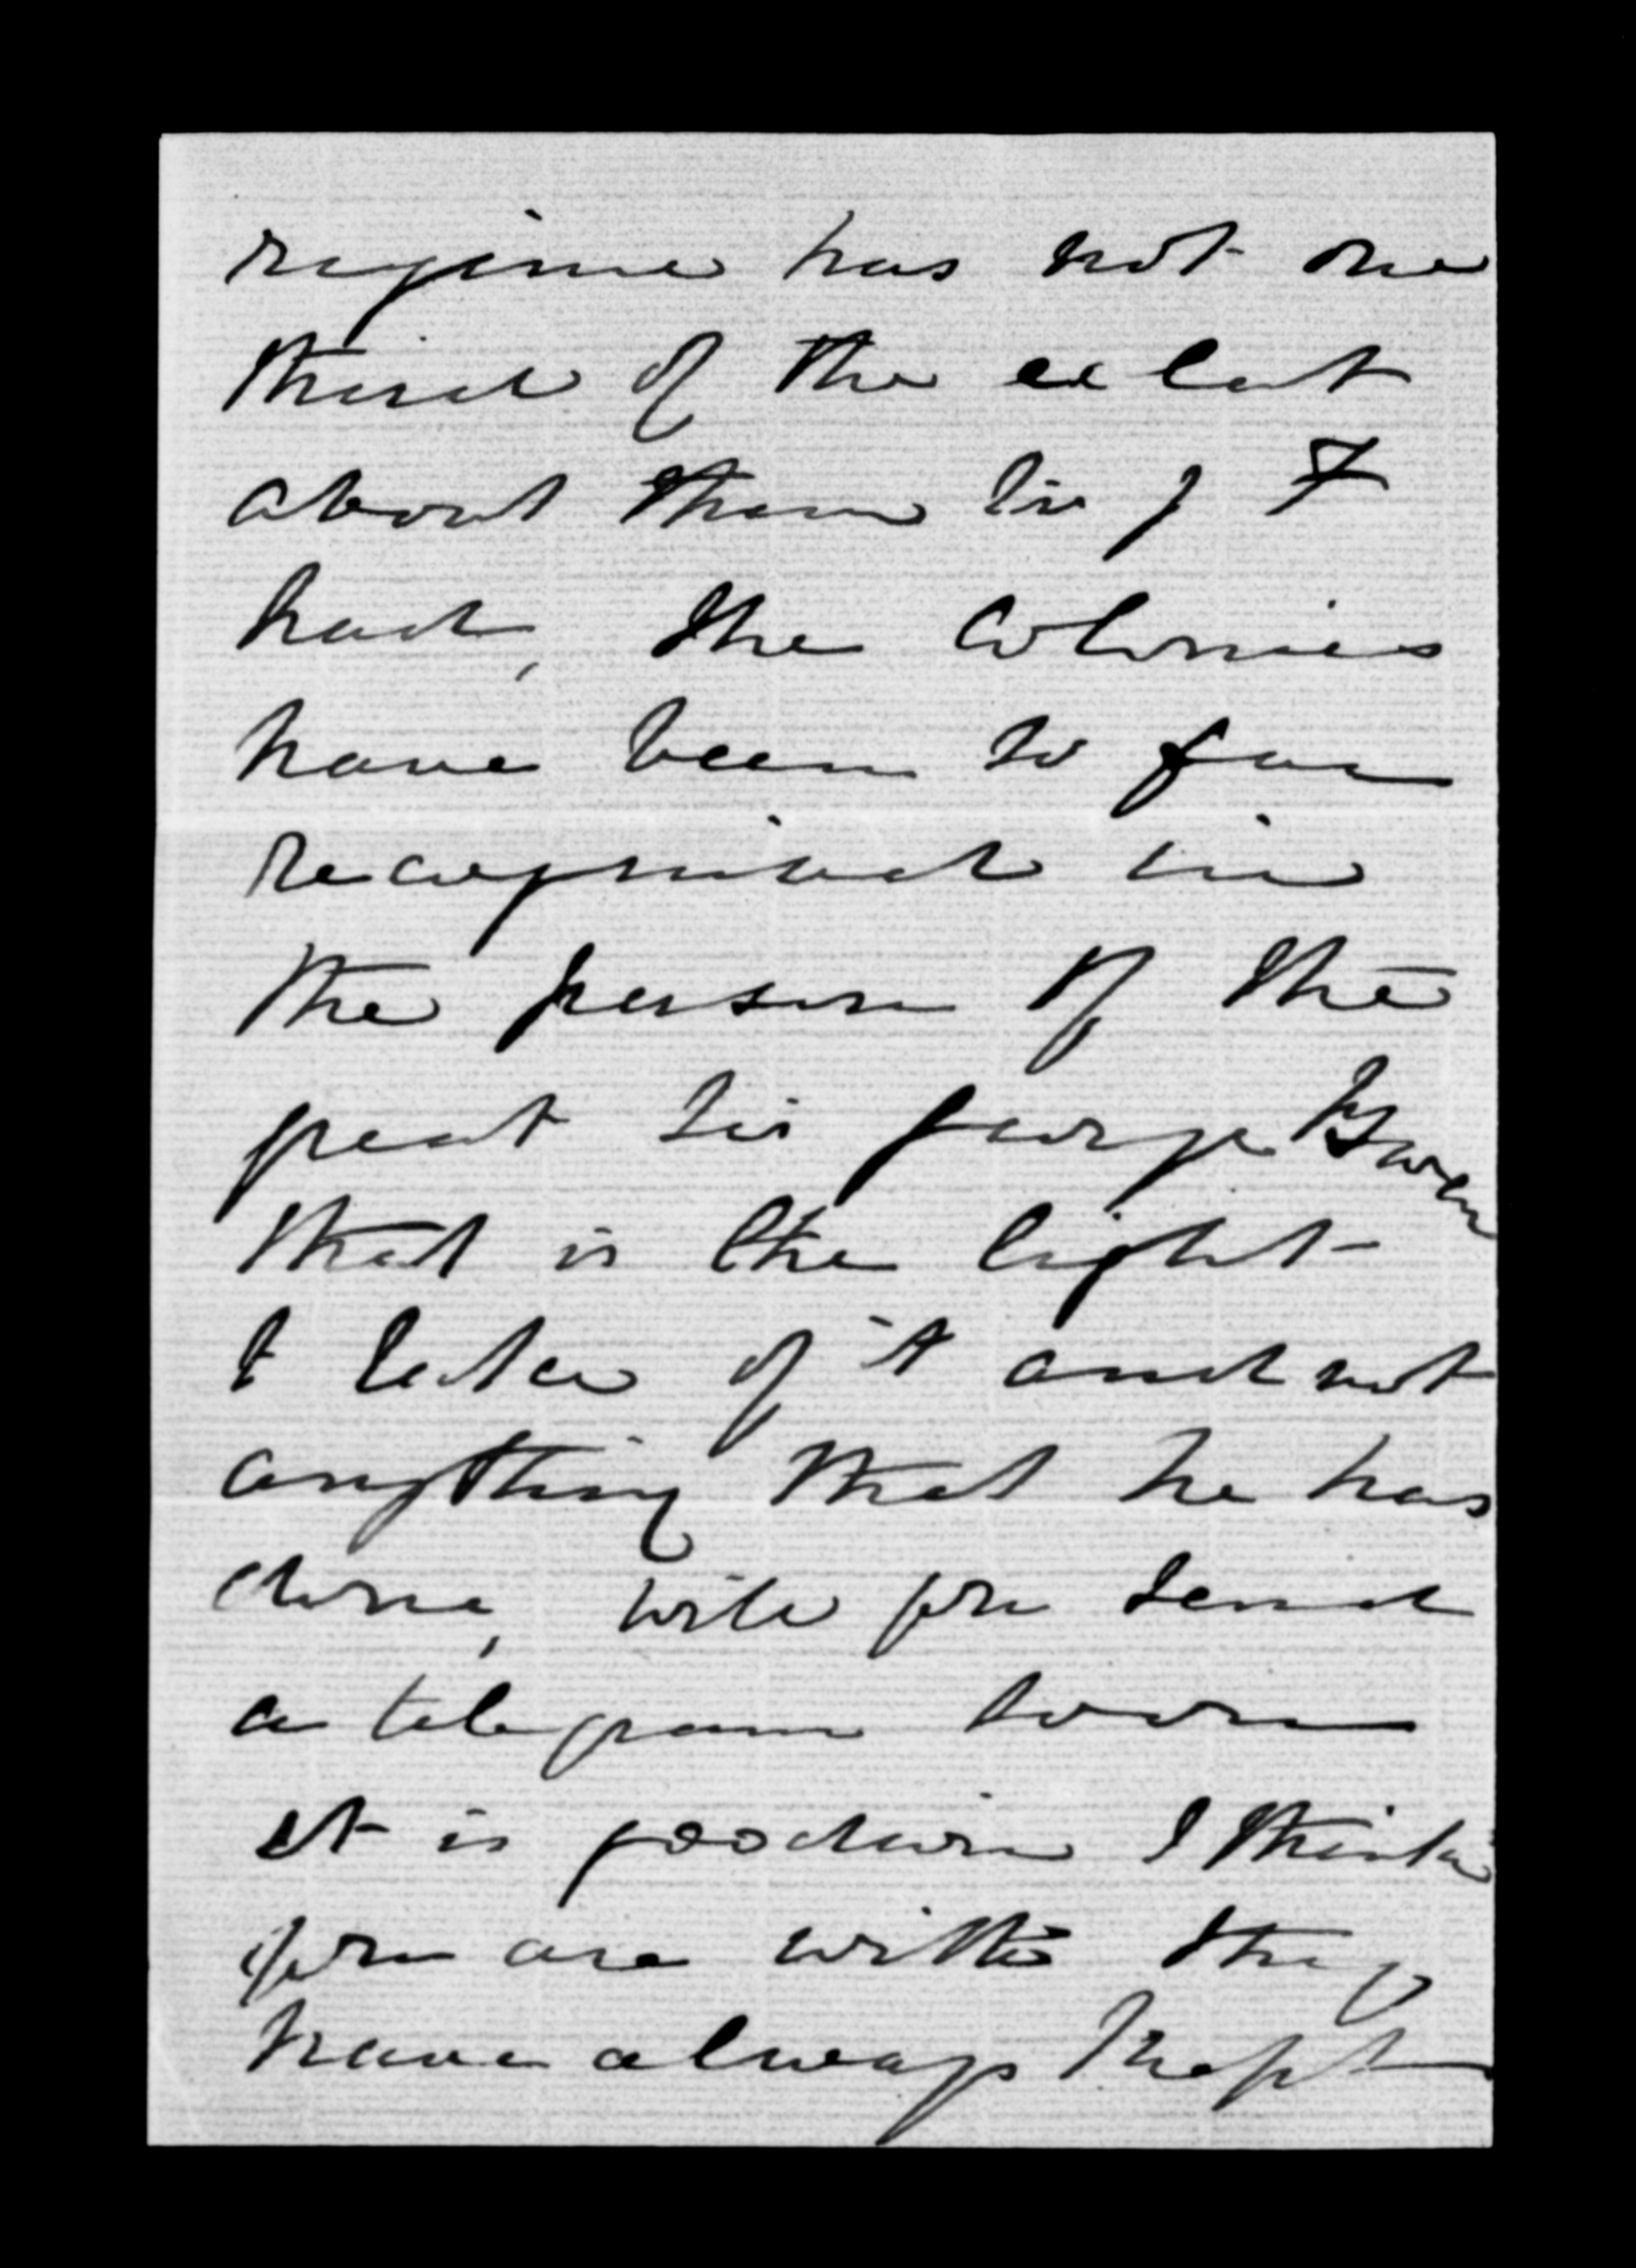 regime has not one
third of the eclat
about them Sir J F
had, the Colonies
have been so far
recognised in
the person of the
great Sir George Bowen
that is the light
I take of it and not
anything that he has
done, will you send
a telegram soon
It is goodwin I think
you are with they
have always kept